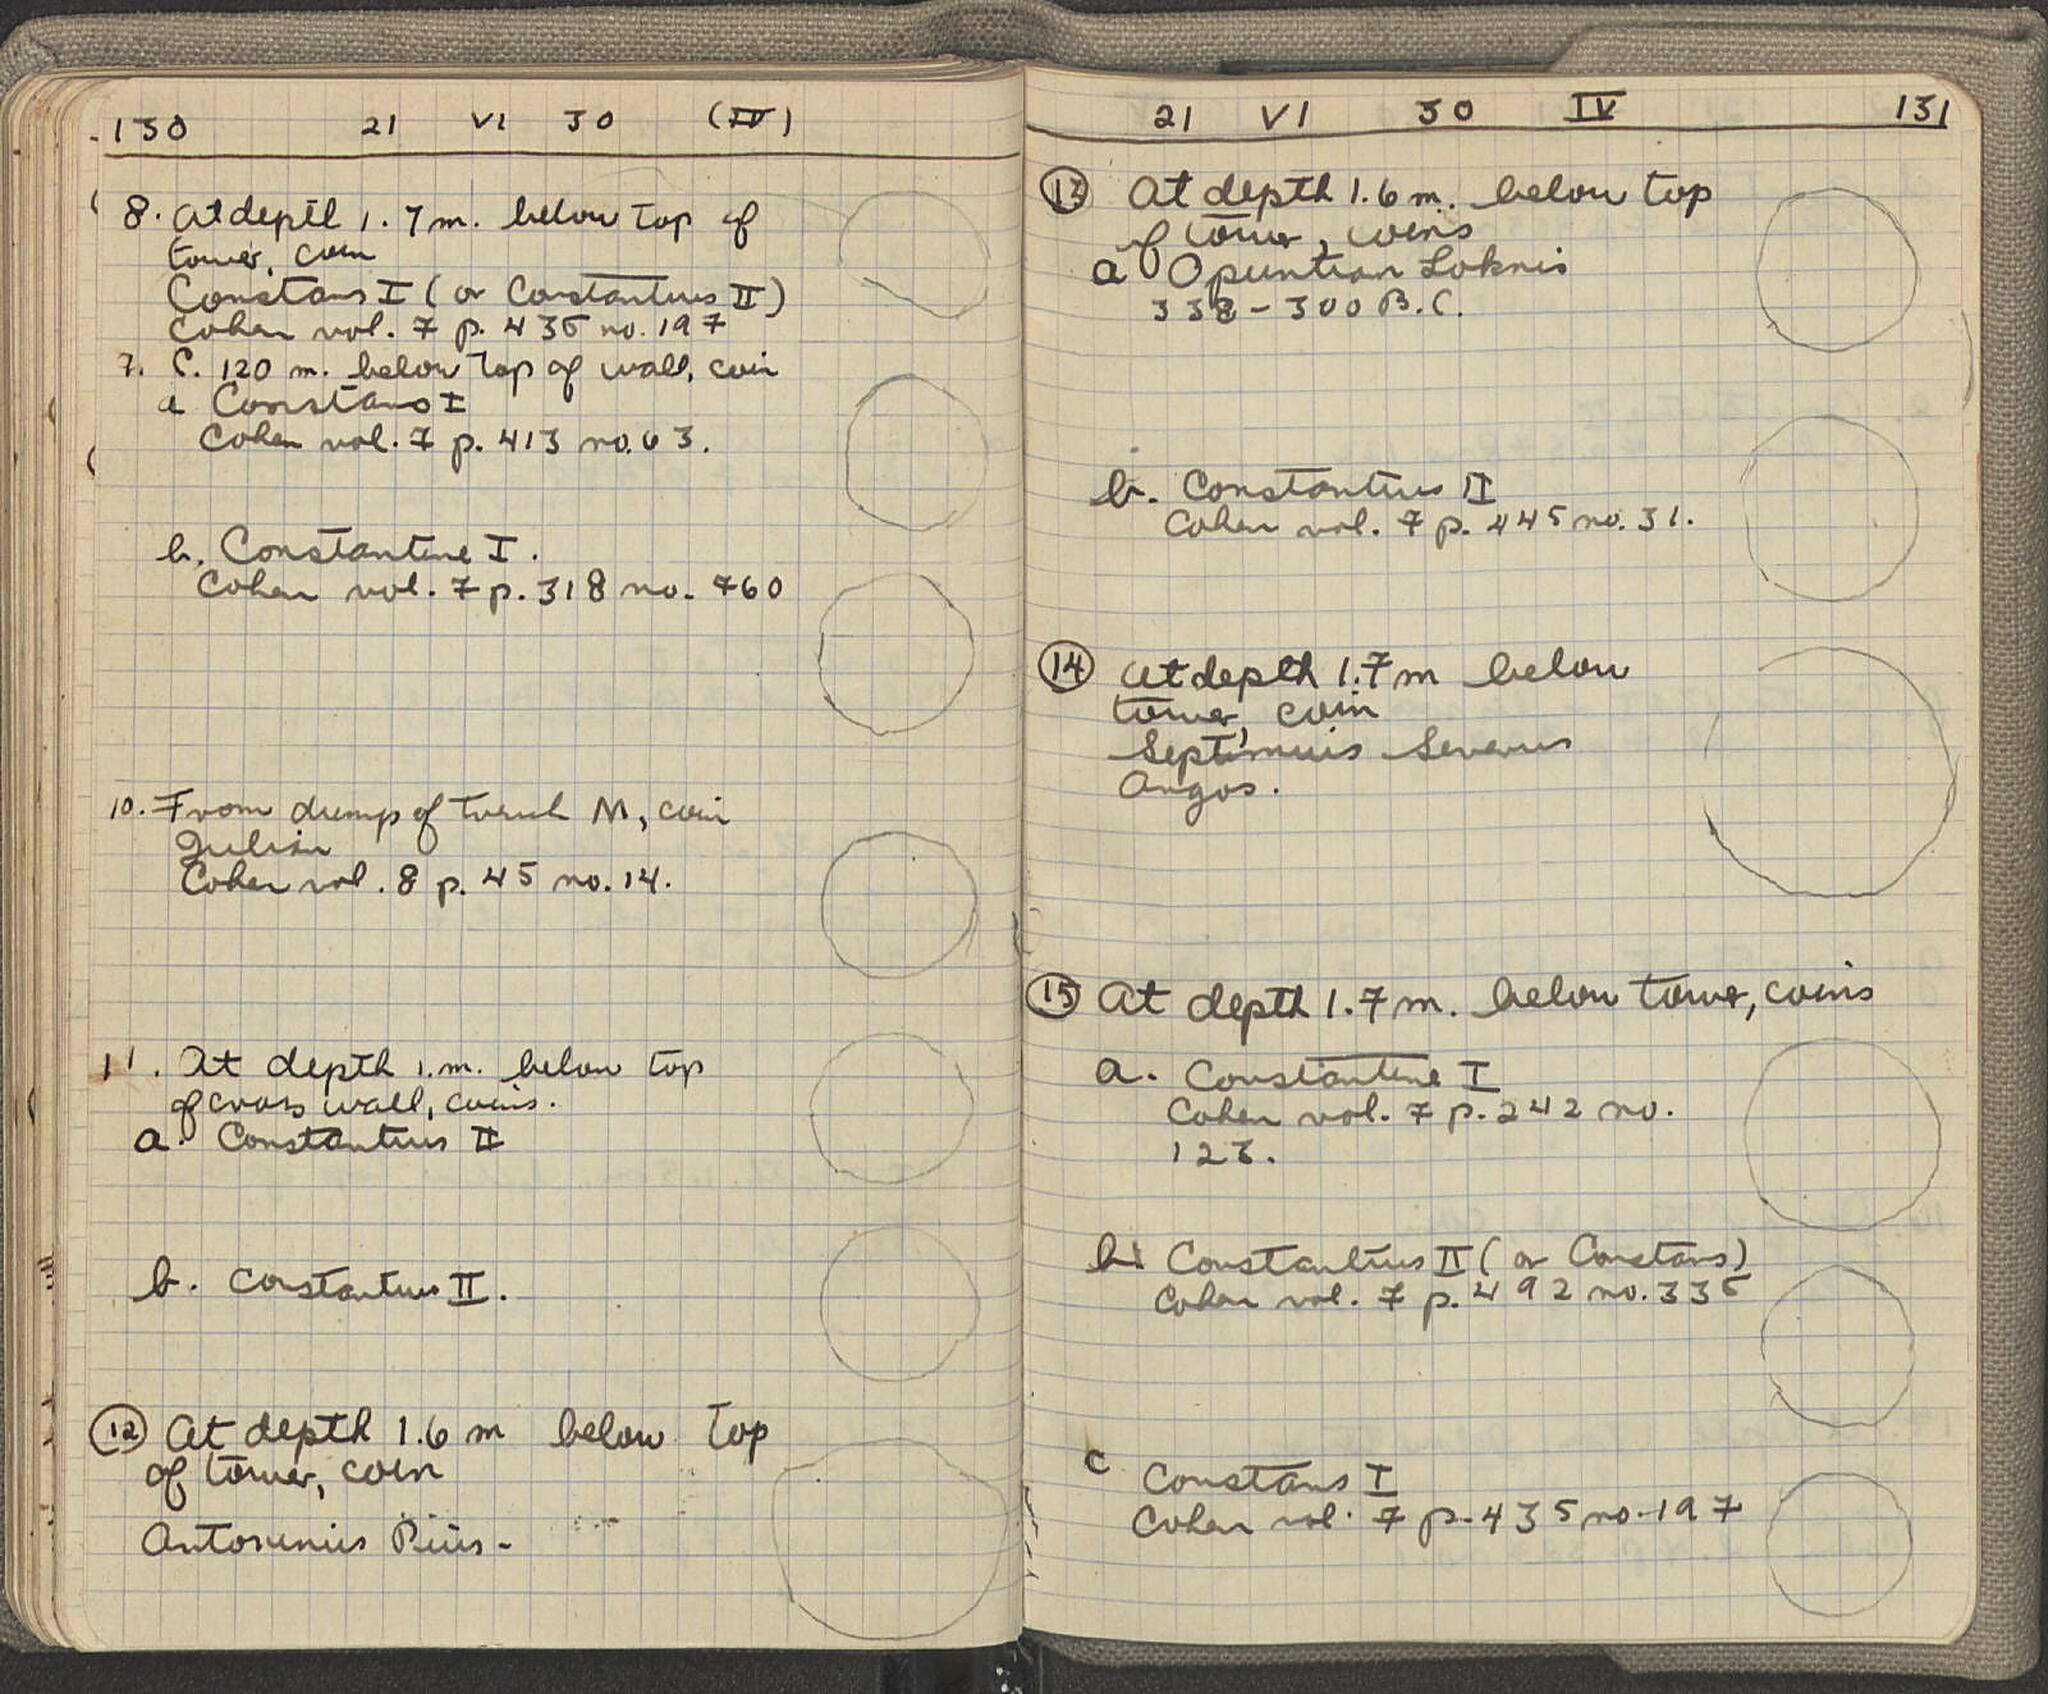 130 21 VI 30 (IV)
8. At depth 1.7 m. below top of
tower, coin
Constans I (or Constantius II)
Cohen vol. 7 p. 435 no. 197
7. C. 120 m. below top of wall, coin
a Constans I
Cohen vol. 7 p. 413 no. 63.
b. Constantine I.
Cohen vol. 7 p. 318 no. 760
10. From dump of trench M, coin
Julian
Cohen vol. 8 p. 45 no. 14.
11. At depth 1. m. below top
of cross wall, coins.
a. Constantius II
b. Constantius II.
12 At depth 1.6 m below top
of tower, coin
Antoninus Pius-
21 VI 30 IV 131
13 At depth 1.6 m. below top
of tower, coins
a Opuntian Lokris
338-300 B.C.
b. Constantius II
Cohen vol. 7 p. 445 no. 31.
14 At depth 1.7 m below
tower, coin
Septimuis Severus
Argos.
15 At depth 1.7 m. below tower, coins
a. Constantine I
Cohen vol. 7 p. 242 no.
123.
b. Constantius II (or Constans)
Cohen vol. 7 p. 492 no. 335
c Constans I
Cohen vol. 7 p. 435 no. 197